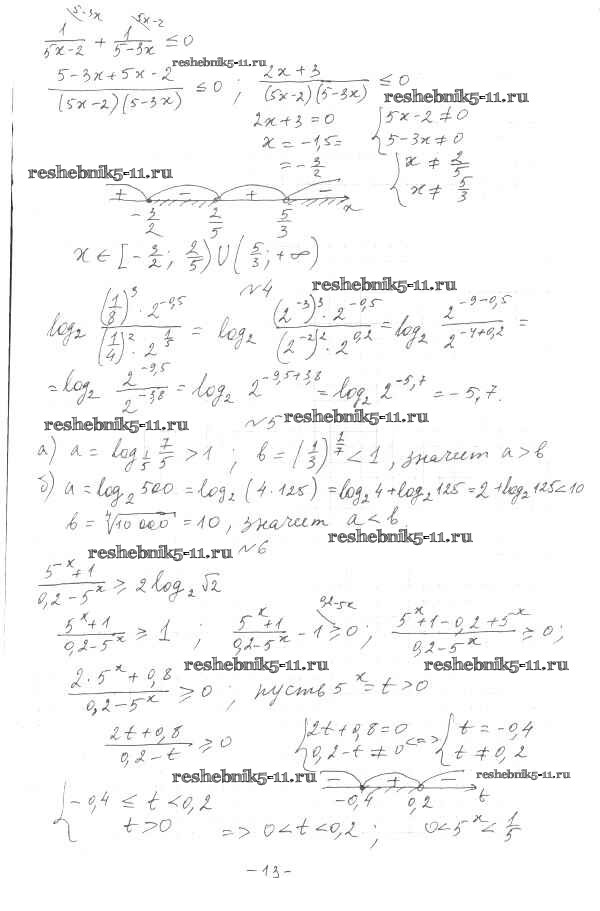 5-3x 5x-2
1/(5x-2) + 1/(5-3x) ≤ 0
reshebnik5-11.ru
(5-3x+5x-2)/((5x-2)(5-3x)) ≤ 0 ; (2x+3)/((5x-2)(5-3x)) ≤ 0
reshebnik5-11.ru
2x+3=0 { 5x-2≠0
x = -1,5= 5-3x≠0
= -3/2 { x ≠ 2/5
x ≠ 5/3
reshebnik5-11.ru
+ - + -
-3/2 2/5 5/3 x
x ∈ [-3/2; 2/5) ∪ (5/3; +∞)
reshebnik5-11.ru
№4
log₂ ((1/8)³ · 2^(-0,5))/((1/4)² · 2^(1/5)) = log₂ ((2^(-3))³ · 2^(-0,5))/((2^(-2))² · 2^(0,2)) = log₂ 2^(-9-0,5)/2^(-4+0,2) =
= log₂ 2^(-9,5)/2^(-3,8) = log₂ 2^(-9,5+3,8) = log₂ 2^(-5,7) = -5,7.
reshebnik5-11.ru №5 reshebnik5-11.ru
а) a = log_(1/5) 7/5 > 1 ; b = (1/3)^(1/7) < 1 , значит a > b
б) a = log₂ 500 = log₂ (4·125) = log₂ 4 + log₂ 125 = 2 + log₂ 125 < 10
b = ⁴√10 000 = 10 , значит a < b.
reshebnik5-11.ru
reshebnik5-11.ru №6
(5^x+1)/(0,2-5^x) ≥ 2 log₂ √2
0,2-5^x
(5^x+1)/(0,2-5^x) ≥ 1 ; (5^x+1)/(0,2-5^x) - 1 ≥ 0 ; (5^x+1-0,2+5^x)/(0,2-5^x) ≥ 0 ;
reshebnik5-11.ru reshebnik5-11.ru
(2·5^x+0,8)/(0,2-5^x) ≥ 0 ; пусть 5^x = t > 0
(2t+0,8)/(0,2-t) ≥ 0 { 2t+0,8=0 <=> { t = -0,4
0,2-t≠0 t ≠ 0,2
reshebnik5-11.ru reshebnik5-11.ru
- + -
-0,4 0,2 t
{ -0,4 ≤ t < 0,2
t > 0 => 0<t<0,2 ; 0<5^x<1/5
-13-